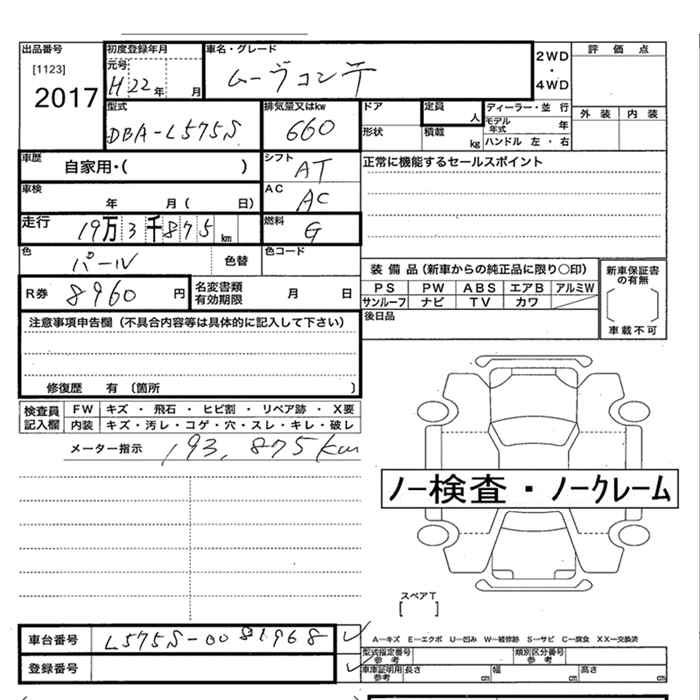 出品番号 初度登録年月 車名・グレード 評価点
[1123] 元号 ムーヴコンテ 2WD・4WD
2017 H22年 月
型式 排気量又はkw ドア 定員 人 ディーラー・並 行 外装 内装
DBA-L575S 660 形状 積載 kg モデル年式 年
ハンドル 左・右
車歴 自家用・( ) シフト AT 正常に機能するセールスポイント
車検 年 月( 日) AC AC
走行 19万3千875km 燃料 G
色 パール 色替 色コード
R券 8960円 名変書類有効期限 月 日
装備品(新車からの純正品に限り○印) 新車保証書の有無
PS PW ABS エアB アルミW
サンルーフ ナビ TV カワ 車載不可
注意事項申告欄(不具合内容等は具体的に記入して下さい) 後日品
修復歴 有 〔箇所 〕
検査員記入欄 FW キズ・飛石・ヒビ割・リペア跡・X要
内装 キズ・汚レ・コゲ・穴・スレ・キレ・破レ
メーター指示 193,875km
ノー検査・ノークレーム
スペアT
[ ]
車台番号 L575S-0081968
A―キズ E―エクボ U―凹み W―補修跡 S―サビ C―腐食 XX―交換済
型式指定番号 参考 類別区分番号 参考
登録番号 車庫証明用 参考 長さ cm 幅 cm 高さ cm